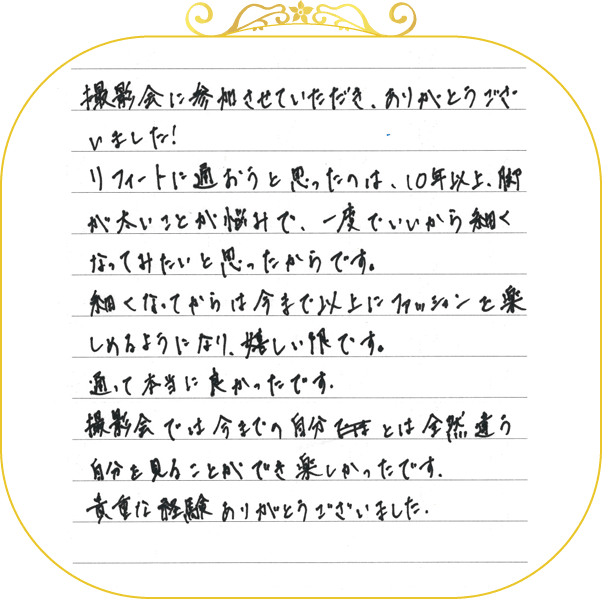 撮影会に参加させていただき、ありがとうござ
いました!
リフィートに通おうと思ったのは、10年以上、脚
が太いことが悩みで、一度でいいから細く
なってみたいと思ったからです。
細くなってからは今まで以上にファッションを楽
しめるようになり、嬉しい限です。
通って本当に良かったです.
撮影会では今までの自分とは全然違う
自分を見ることができ楽しかったです.
貴重な経験ありがとうございました.